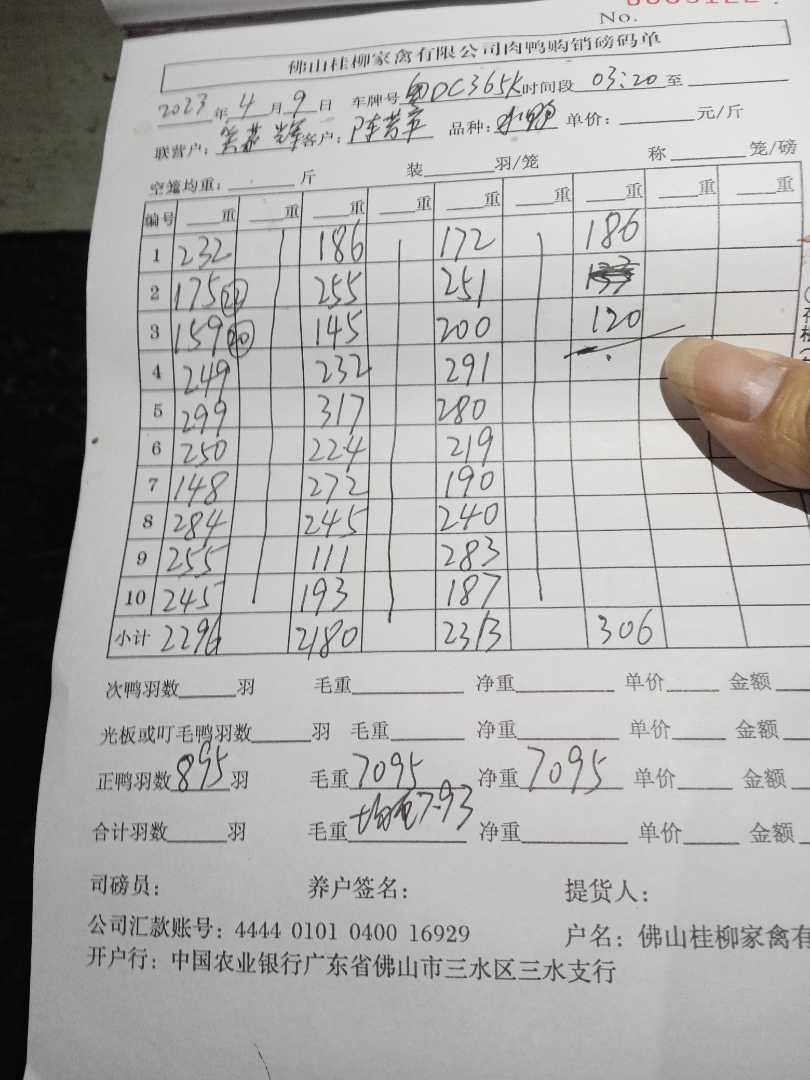 No.
佛山桂柳家禽有限公司肉鸭购销磅码单
2023年4月9日 车牌号粤DC365K时间段03:20至
联营户: 辉 客户: 陈 品种: 水鸭 单价: 元/斤
空笼均重: 斤 装 羽/笼 称 笼/磅
编号 重 重 重 重 重 重 重 重 重
1 232 186 172 186
2 175 (22) 255 251
3 159 (20) 145 200 120
4 249 232 291
5 299 317 280
6 250 224 219
7 148 272 190
8 284 245 240
9 255 111 283
10 245 193 187
小计 2296 2180 2313 306
次鸭羽数 羽 毛重 净重 单价 金额
光板或叮毛鸭羽数 羽 毛重 净重 单价 金额
正鸭羽数895羽 毛重7095 净重7095 单价 金额
合计羽数 羽 毛重均重7.93 净重 单价 金额
司磅员: 养户签名: 提货人:
公司汇款账号: 4444 0101 0400 16929 户名: 佛山桂柳家禽有
开户行: 中国农业银行广东省佛山市三水区三水支行